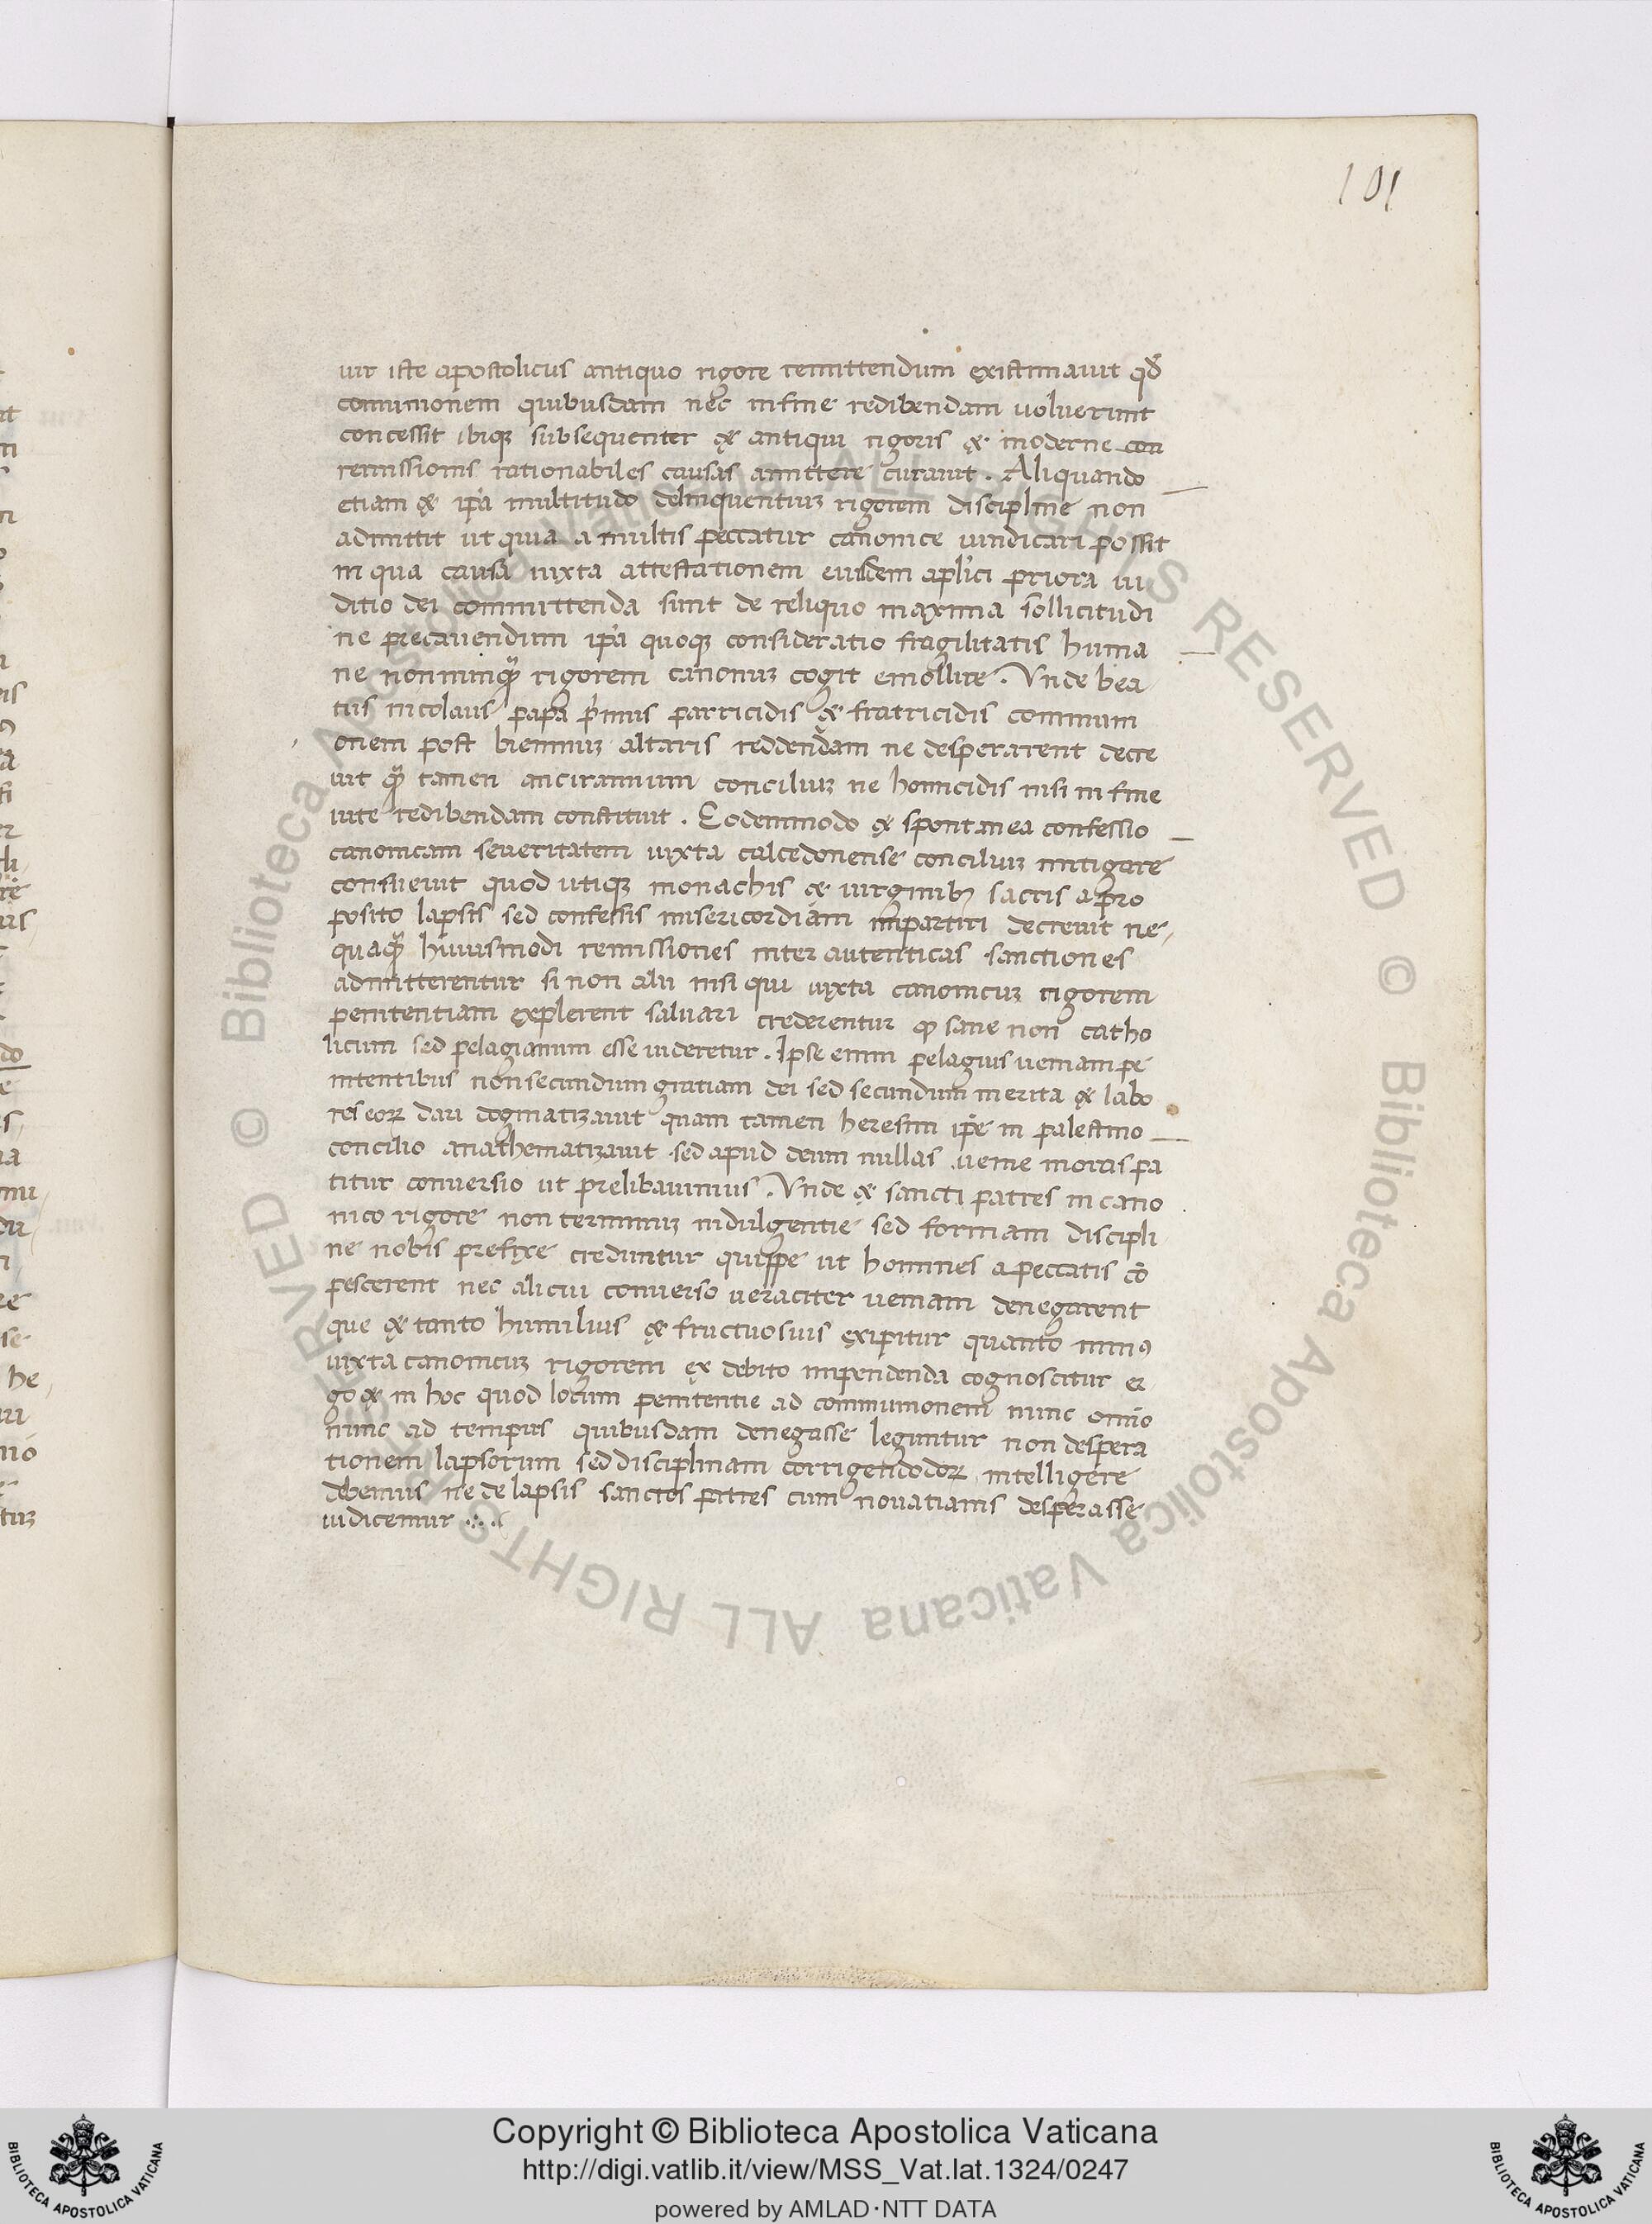 101
uit iste apostolicus antiquo rigore remittendum existimauit qđ
comunionem quibusdam nec in fine redibendam uoluerunt
concessit ibiqꝫ subsequenter & antiqui rigoris & moderne con
remissionis rationabiles causas amittere curauit. Aliquando
etiam & ip̄a multitudo delinquentiuꝫ rigorem discipline non
admittit ut quia a multis peccatur canonice uindicari possit
in qua causa iuxta attestationem eiusdem apl̓ici priora iu
ditio dei committenda sunt de reliquo maxima sollicitudi
ne precauendum ip̄a quoqꝫ consideratio fragilitatis huma
ne nonnunq̄ rigorem canonuꝫ cogit emollire. Vnde bea
tus nicolaus papa p̓mus parricidis & fratricidis communi
onem post bienniuꝫ altaris reddendam ne desperarent decre
uit q̄ tamen anciranium conciliuꝫ ne homicidis nisi in fine
uite redibendam constituit. Eodemmodo & spontanea confessio
canonicam seueritatem iuxta calcedonense conciliuꝫ mitigare
consueuit quod utiqꝫ monachis & uirginibꝫ sacris a pro
posito lapsis sed confessis misericordiam impartiri decreuit ne
quaq̄ huiusmodi remissiones inter autenticas sanctiones
admitterentur si non alii nisi qui iuxta canonicuꝫ rigorem
penitentiam explerent saluari crederentur qͦ sane non catho
licum sed pelagianum esse uideretur. Ipse enim pelagius ueniam pe
nitentibus non secundum gratiam dei sed secundum merita & labo
res eoꝝ dari dogmatizauit quam tamen heresim ip̄e in palestino
concilio anathematizauit sed apud deum nullas uenie moras pa
titur conuersio ut prelibauimus. Vnde & sancti patres in cano
nico rigore non terminuꝫ indulgentie sed formam discipli
ne nobis prefixe creduntur quippe ut homines a peccatis cō
pescerent nec alicui conuerso ueraciter ueniam denegarent
que & tanto humilius & fructuosius exipitur quanto minꝰ
iuxta canonicuꝫ rigorem ex debito impendenda cognoscitur er
go & in hoc quod locum penitentie ad communionem nunc omīo
nunc ad tempus quibusdam denegasse leguntur non despera
tionem lapsorum sed disciplinam corrigendodoꝝ intelligere
debemus ne de lapsis sanctos patres cum nouatianis desperasse
iudicemur
Copyright © Biblioteca Apostolica Vaticana
http://digi.vatlib.it/view/MSS_Vat.lat.1324/0247
powered by AMLAD·NTT DATA
BIBLIOTECA APOSTOLICA VATICANA
BIBLIOTECA APOSTOLICA VATICANA
© Biblioteca Apostolica Vaticana ALL RIGHTS RESERVED © Biblioteca Apostolica Vaticana ALL RIGHTS RESERVED